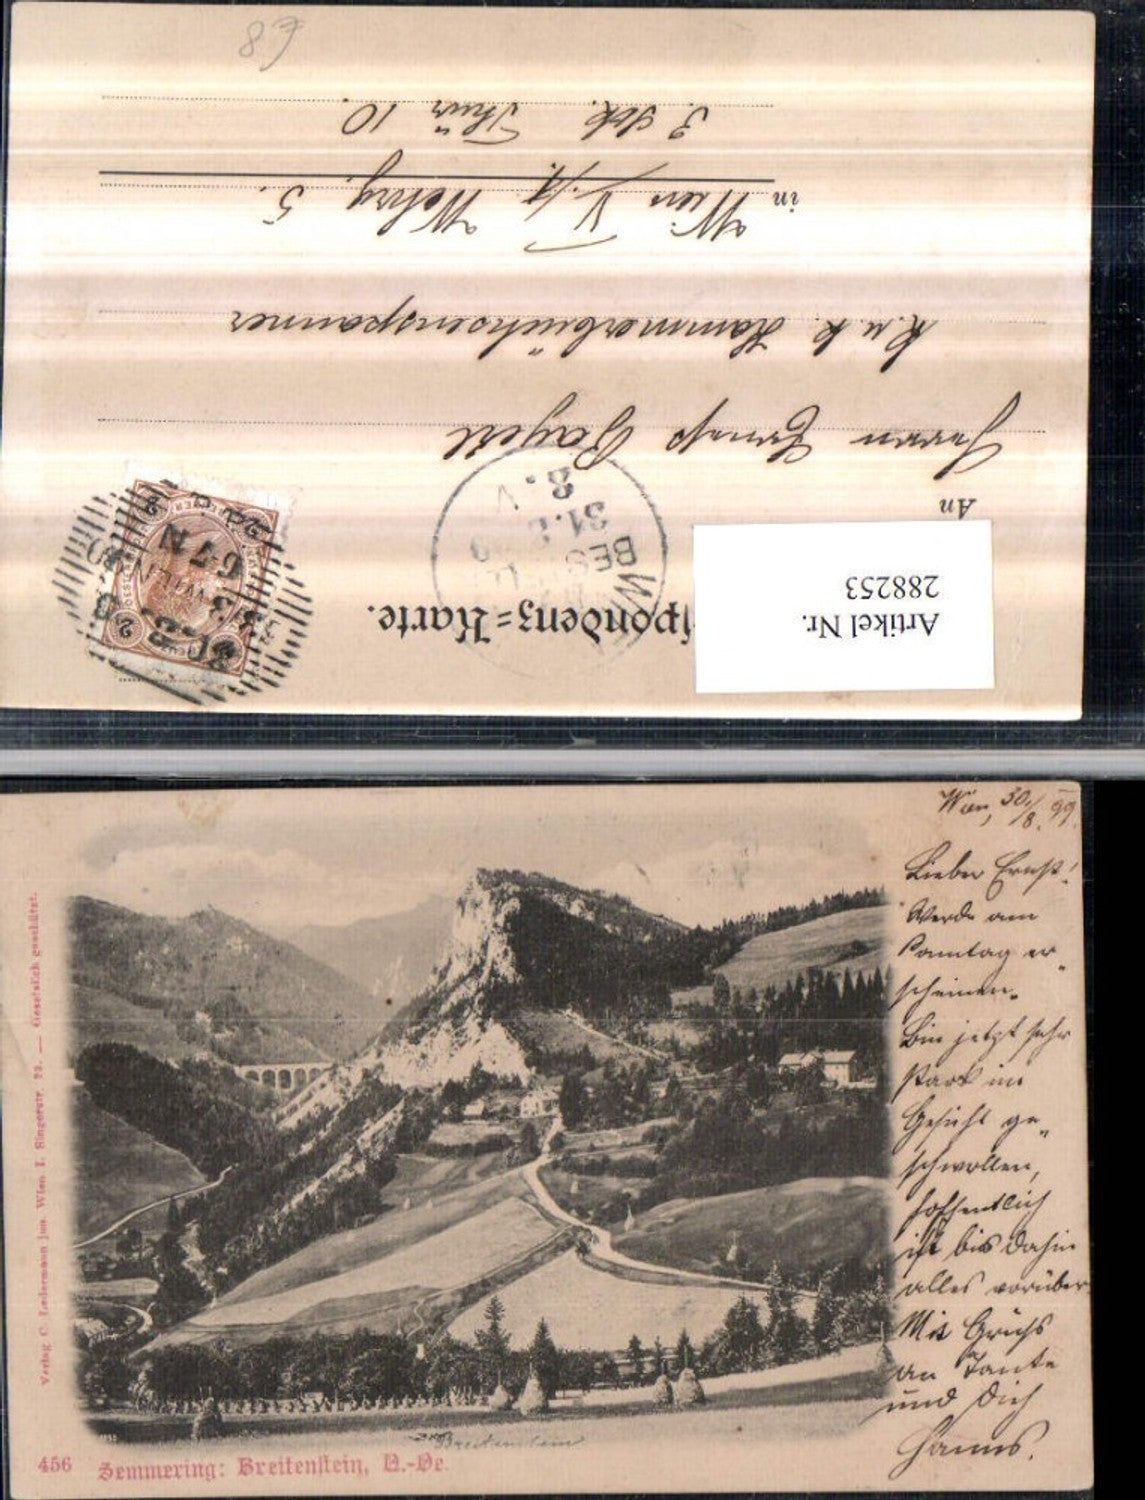 Korrespondenz-Karte.
Artikel Nr.
288253
An
Herrn Ernst
K. u. k. Kammerbüchsenspanner
in Wien V./1. Wehrg. 5.
3. Stk. Thür 10.
Wien, 30/8. 99.
Lieber Ernst!
Werde am
Sonntag er-
scheinen.
Bin jetzt sehr
stark im
Gesicht ge-
schwollen,
hoffentlich
ist bis dahin
alles vorüber
Mit Gruß
an Tante
und Dich
Hanns.
Verlag C. Ledermann jun. Wien I. Singerstr. 23. — Gesetzlich geschützt.
Breitenstein
456 Semmering: Breitenstein, N.-Oe.